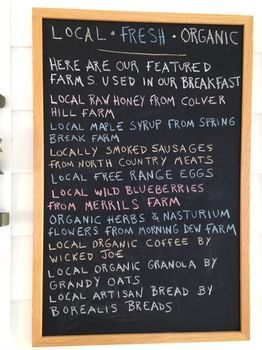 LOCAL · FRESH · ORGANIC
HERE ARE OUR FEATURED
FARMS USED IN OUR BREAKFAST
LOCAL RAW HONEY FROM COLVER
HILL FARM
LOCAL MAPLE SYRUP FROM SPRING
BREAK FARM
LOCALLY SMOKED SAUSAGES
FROM NORTH COUNTRY MEATS
LOCAL FREE RANGE EGGS
LOCAL WILD BLUEBERRIES
FROM MERRILS FARM
ORGANIC HERBS & NASTURIUM
FLOWERS FROM MORNING DEW FARM
LOCAL ORGANIC COFFEE BY
WICKED JOE
LOCAL ORGANIC GRANOLA BY
GRANDY OATS
LOCAL ARTISAN BREAD BY
BOREALIS BREADS